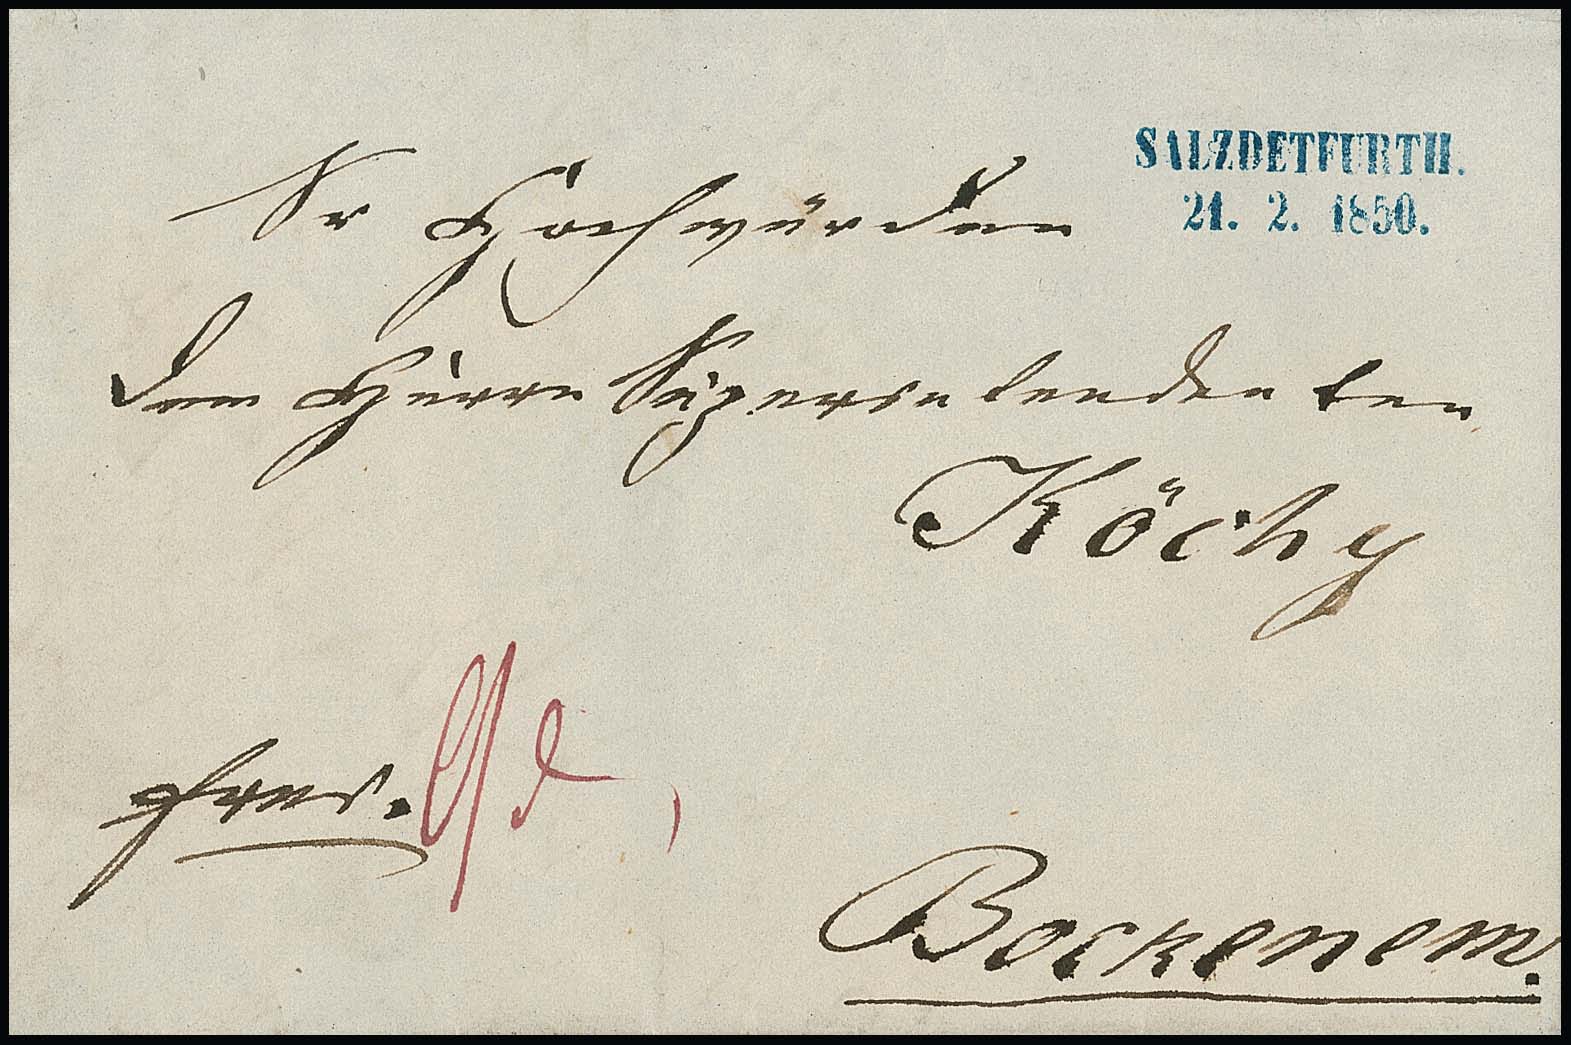 SALZDETFURTH.
21. 2. 1850.
Sr Hochwürden
dem Herrn Superintendenten
Köchy
Bockenem.